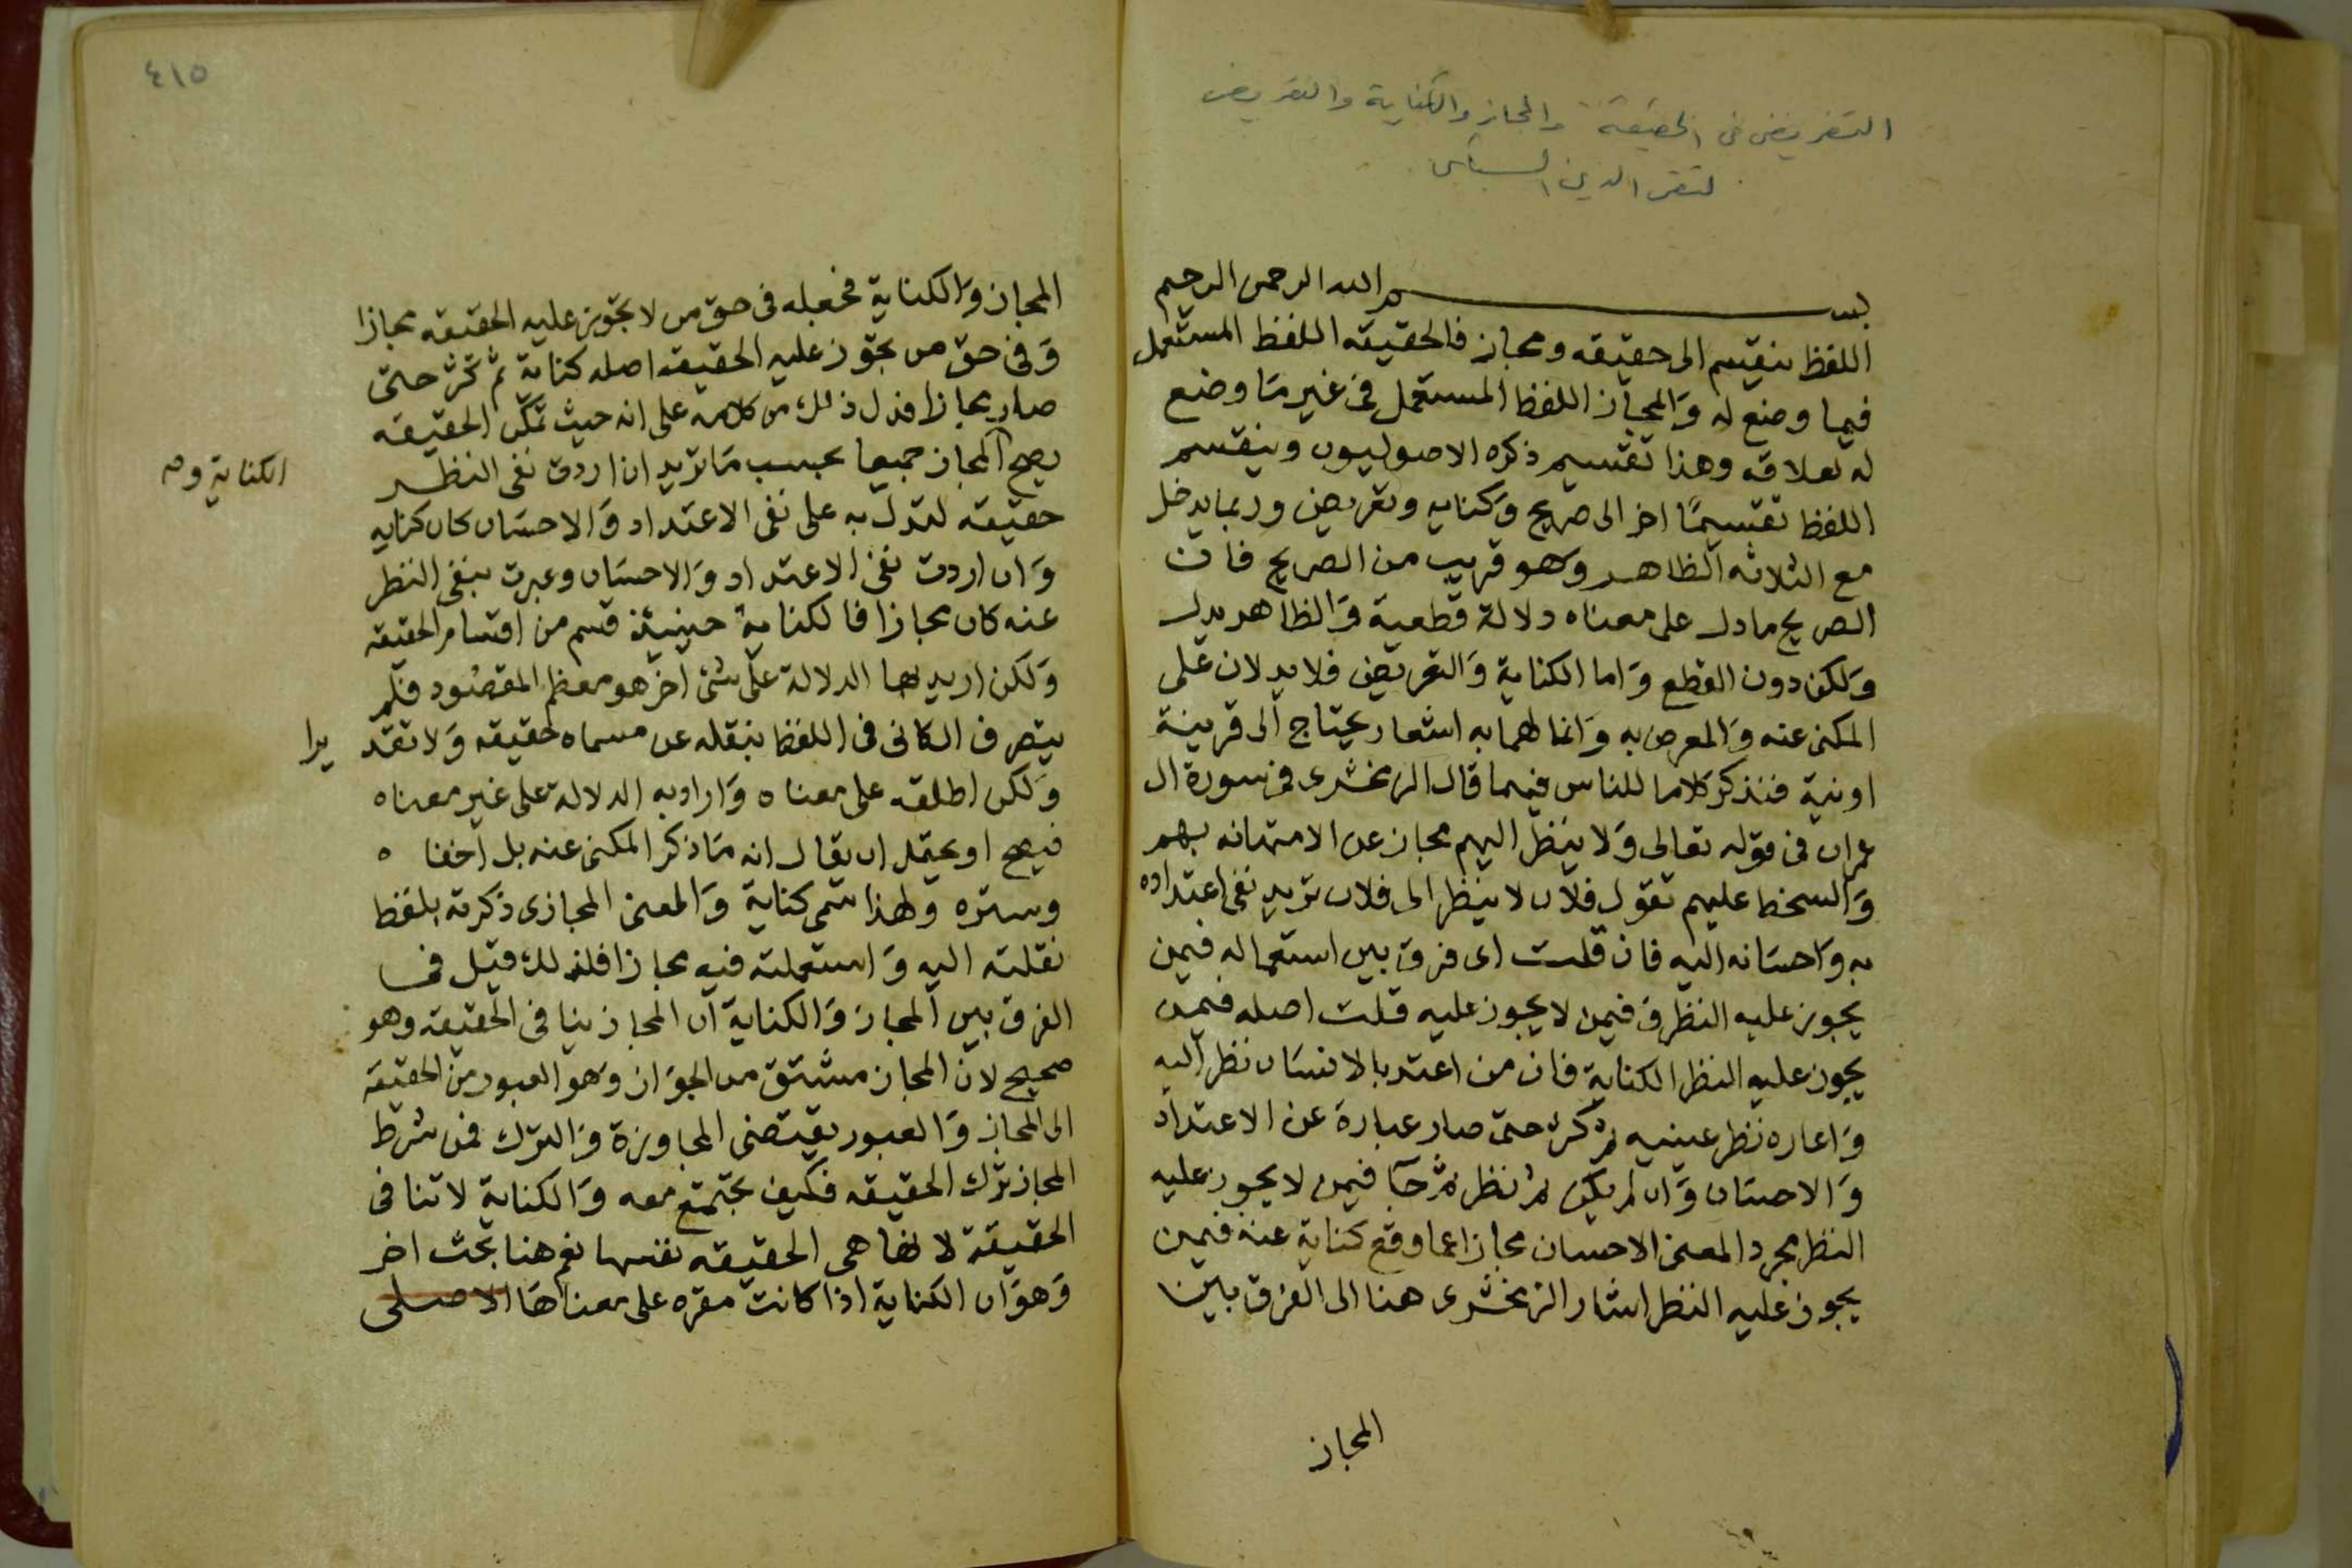 التعريض في الحقيقة والمجاز والكناية والتعريض
لتقى الدين السبكى
بسم الله الرحمن الرحيم
اللفظ ينقسم الى حقيقه ومجاز فالحقيقه اللفظ المستعمل
فيما وضع له وَالمجاز اللفظ المستعمل فى غير مَا وضع
له لعلاقه وهذا تقسيم ذكره الاصوليون وينقسم
اللفظ تقسيمًا اخر الى صريح وَكنايه وتعريض وربما يدخل
مع الثلاثه الظاهر وَهو قريب من الصريح فان
الصريح مادل على معناه دلالة قطعية وَالظاهر يدل
وَلكن دون القطع وَاما الكناية وَالتعريض فلا يدلان على
المكنى عنه وَالمعرض به وَانما لهما به اشعار يحتاج الى قرينة
اونية فنذكر كلاما للناس فيهما قال الزمخشرى فى سورة ال
عمران فى قوله تعالى وَلا ينظر اليهم مجاز عن الاستهانه بهم
وَالسخط عليهم تقول فلان لا ينظر الى فلان تريد نفى اعتداده
به وَاحسَانه اليه فان قلت اى فرق بين استعماله فيمن
يجوز عليه النظر وَفيمن لا يجوز عليه قلت اصله فيمن
يجوز عليه النظر الكناية فان من اعتد بالانسَان نظر اليه
وَاعاره نظر عينيه ثم كثر حتى صار عبارة عن الاعتداد
وَالاحسَان وَان لم يكن ثم نظر ثم جَآ فيمن لا يجوز عليه
النظر مجرد المعنى الاحسان مجازا عما وقع كناية عنه فيمن
يجوز عليه النظر اشار الزمخشرى هنا الى الفرق بين
المجاز
٤١٥
المجاز وَالكناية فجعله فى حق من لا تجوز عليه الحقيقه مجازا
وَفى حق من تجوز عليه الحقيقه اصله كناية ثم كثر حتى
صار مجازا فدل ذلك من كلامه على انه حيث تمكن الحقيقه
يصح المجاز جميعا بحسب مَا تريد ان اردت نفى النظر
الكناية و صح
حقيقه لتدل به على نفى الاعتداد وَالاحسَان كان كنايه
وَان اردت نفى الاعتداد وَالاحسَان وعبرت بنفى النظر
عنه كان مجازا فالكناية حينيئذ قسم من اقسام الحقيقه
وَلكن اريد بها الدلالة على شئ اخر هو معظم المقصُود فلم
يتصرف الكانى فى اللفظ بنقله عن مسماه لحقيقه وَلا تقد
يرا
وَلكن اطلقه على معناه وَاراد به الدلالة على غير معناه
فيصح او يحتمل ان يقال انه مَا ذكر المكنى عنه بل اخفاه
وستره ولهذا سمى كناية وَالمعنى المجازى ذكرته بلفظ
نقلته اليه وَاستعملته فيه مجازا فلذلك قيل فى
الفرق بين المجاز وَالكناية ان المجاز ينافى الحقيقه وهو
صحيح لان المجاز مشتق من الجوَاز وَهو العبور من الحقيقه
الى المجاز وَالعبور يقتضى المجاوزة وَالترك فمن شرط
المجاز ترك الحقيقه فكيف تجتمع معه وَالكناية لا تنافى
الحقيقة لانها هى الحقيقه نفسها نعم هنا بحث اخر
وَهوَ ان الكناية اذا كانت مقره على معناهَا الاصلى